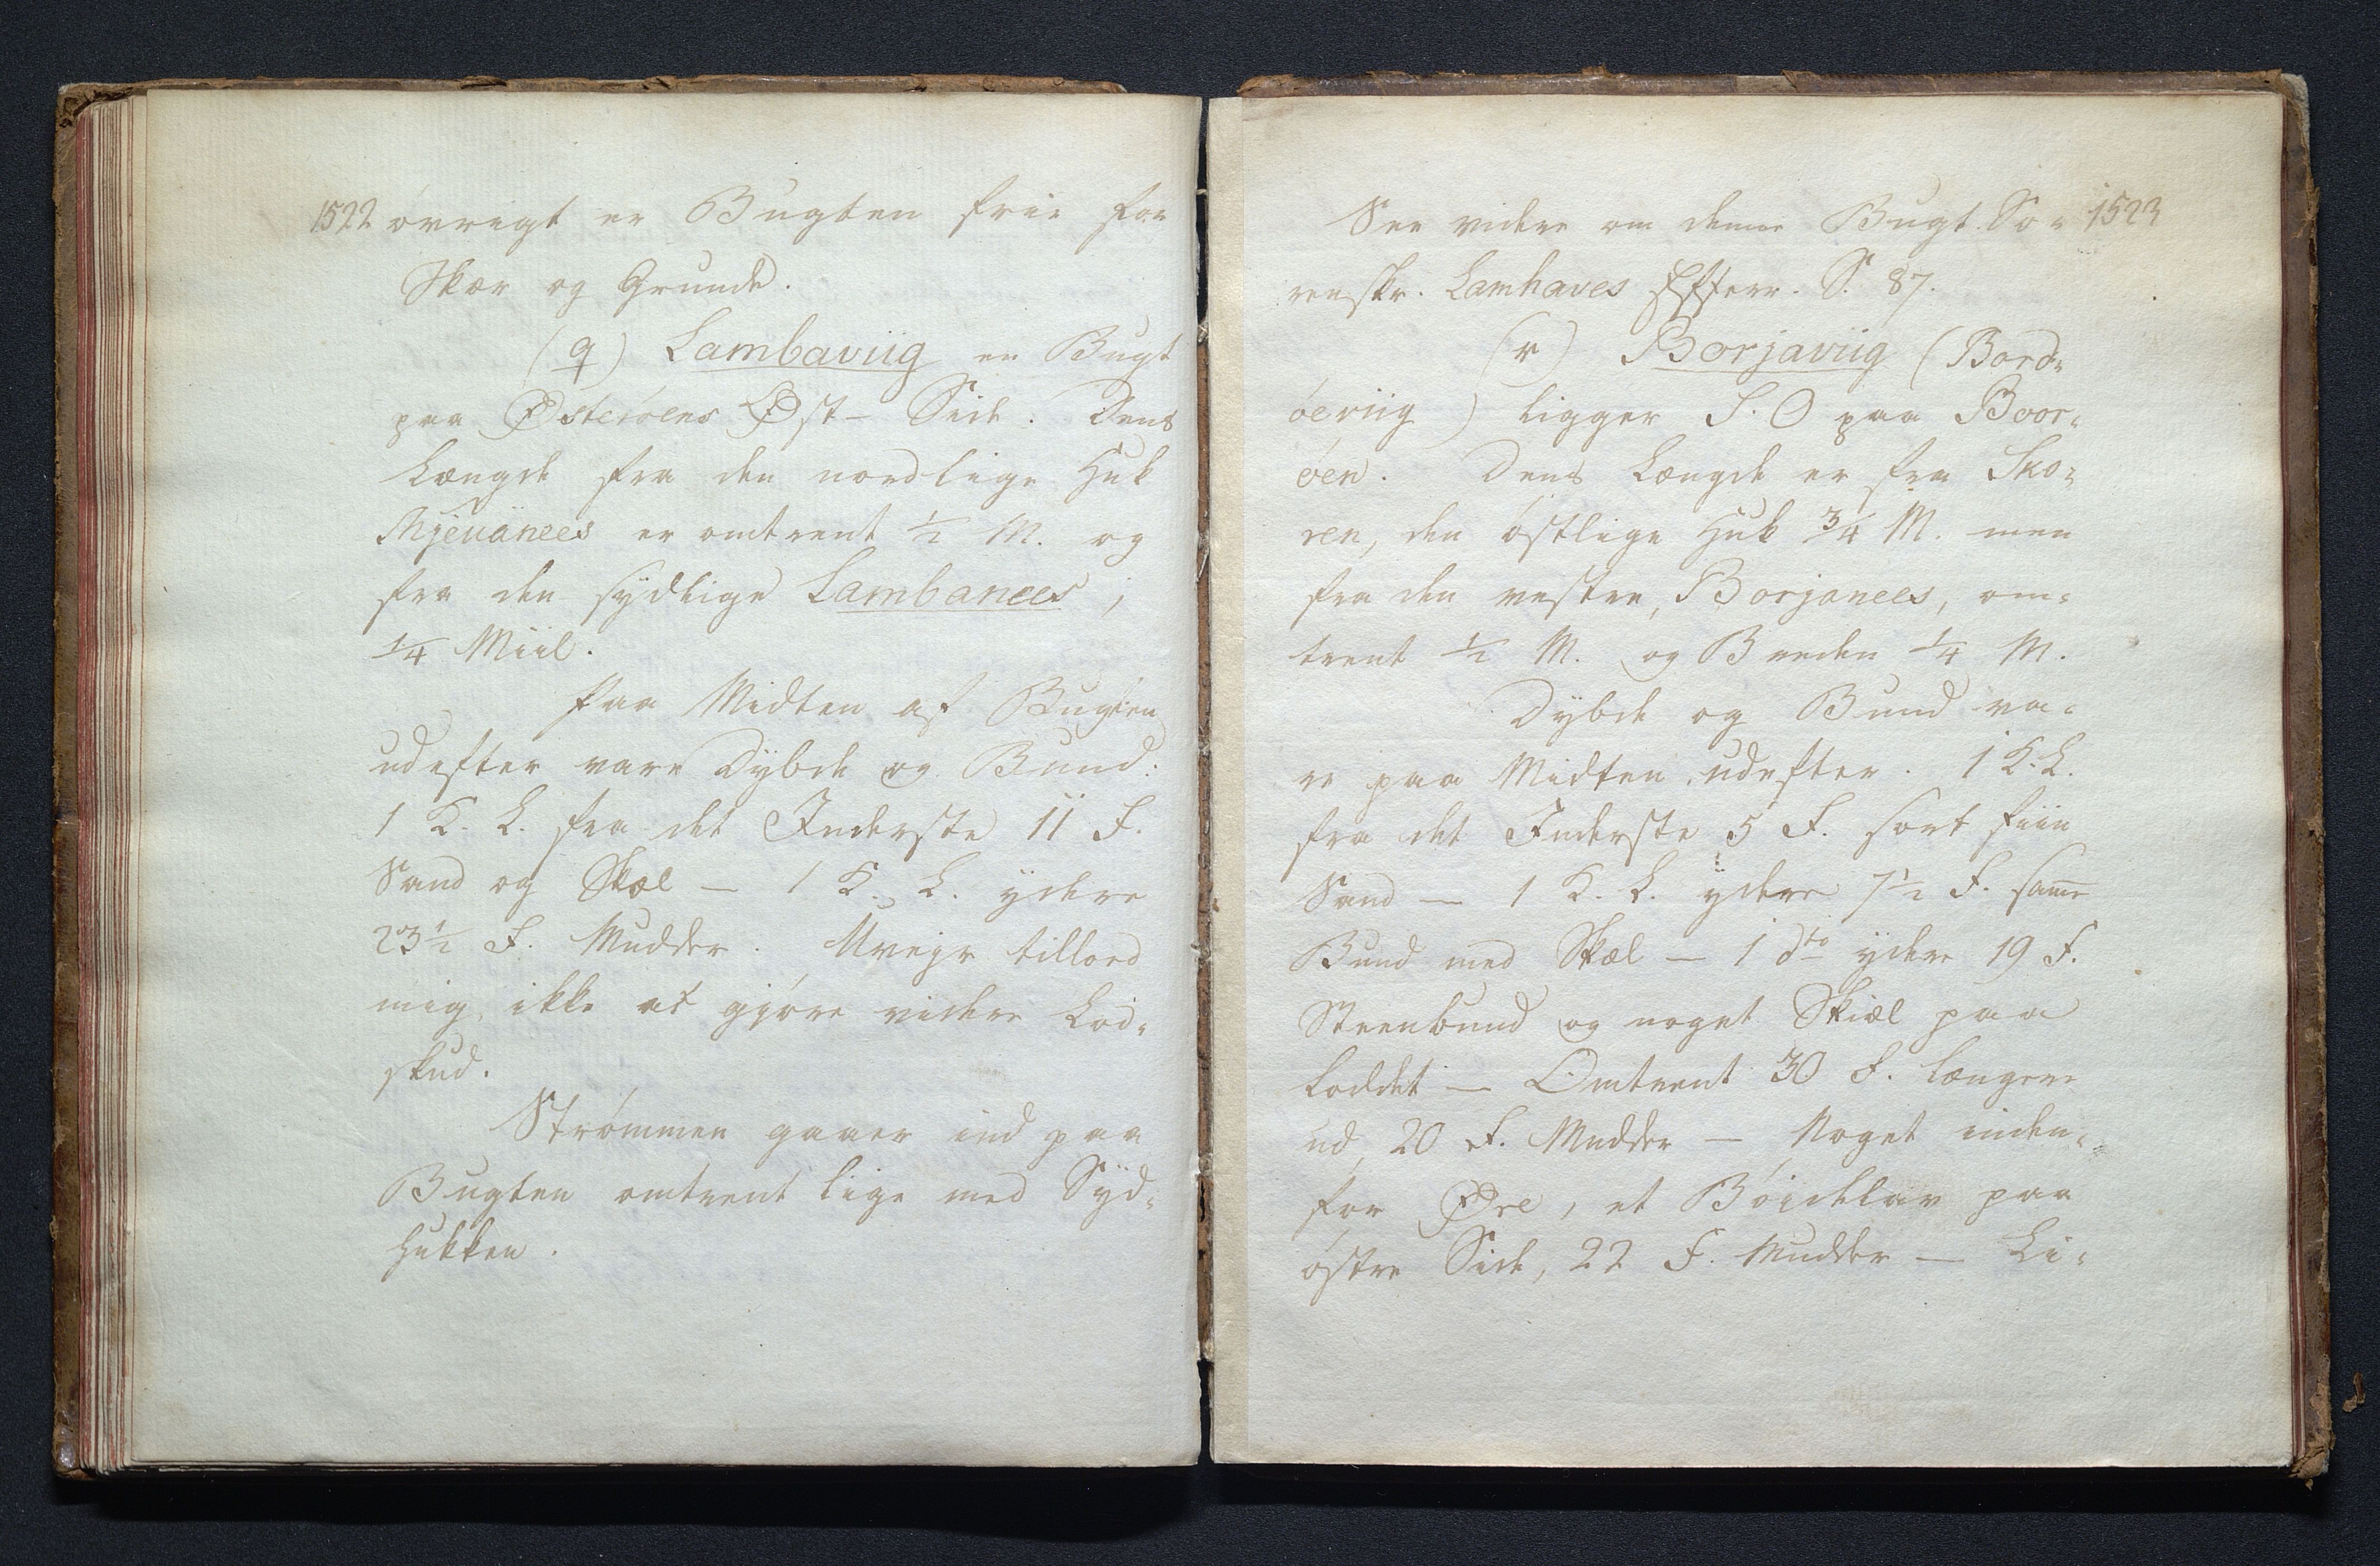 1522 övrigt er Bugten frie for
Skær og Grunde.
(q) Lambaviig en Bugt
paa Østeröens Øst- Side. Dens
Længde fra den nordlige Huk
Mjeuänees er omtrent ½ M. og
fra den sydlige Lambanees,
¼ Miil.
Paa Midten af Bugten
udefter vare Dybde og Bund:
1 K. L. fra det Inderste 11 F.
Sand og Skæl — 1 K. L. ydere
23½ F. Mudder. Uvejr tillod
mig ikke at gjöre videre Lod-
skud.
Strömmen gaaer ind paa
Bugten omtrent lige med Syd-
hukken.
See videre om denne Bugt. So- 1523
renskr. Lamhaves Efterr. S. 87.
(r) Borjaviig (Bord-
öeviig) ligger S. O paa Boor-
öen. Dens Længde er fra Sko-
ren, den östlige Huk ¾ M. men
fra den vestre, Borjanees, om-
trent ½ M. og Breden ¼ M.
Dybde og Bund va-
re paa Midten udefter. 1 K. L.
fra det Inderste 5 F. sort fiin
Sand — 1 K. L. ydere 7½ F. samme
Bund med Skæl — 1 dto ydere 19 F.
Steenbund og noget Skiæl paa
Loddet — Omtrent 30 F. længere
ud, 20 F. Mudder — Noget inden-
for Øre, et Böidelav paa
östre Side, 22 F. Mudder — Li-